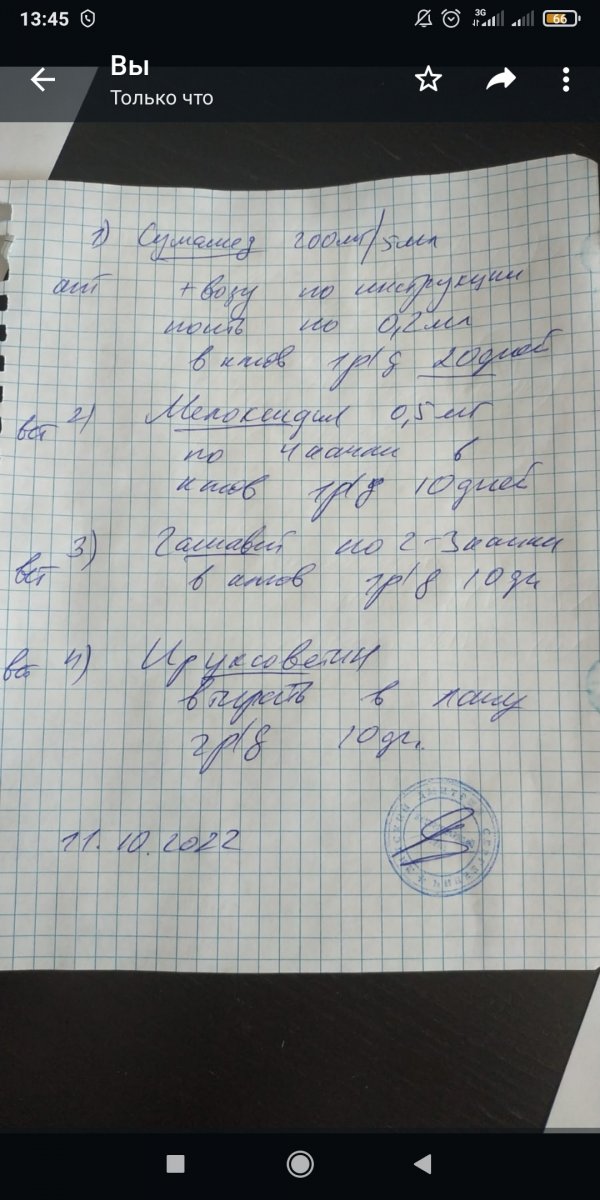 13:45
3G
66
Вы
Только что
1) Сумамед 200мг/5мл
апт + воду по инструкции
поить по 0,2мл
в клюв 1р/д 20дней
вет 2) Мелоксидил 0,5мг
по 4 капли в
клюв 1р/д 10дней
вет 3) Гамавит по 2-3 капли
в клюв 1р/д 10дн
вет 4) Ируксоветин
втирать в лапу
2р/д 10дн.
11.10.2022